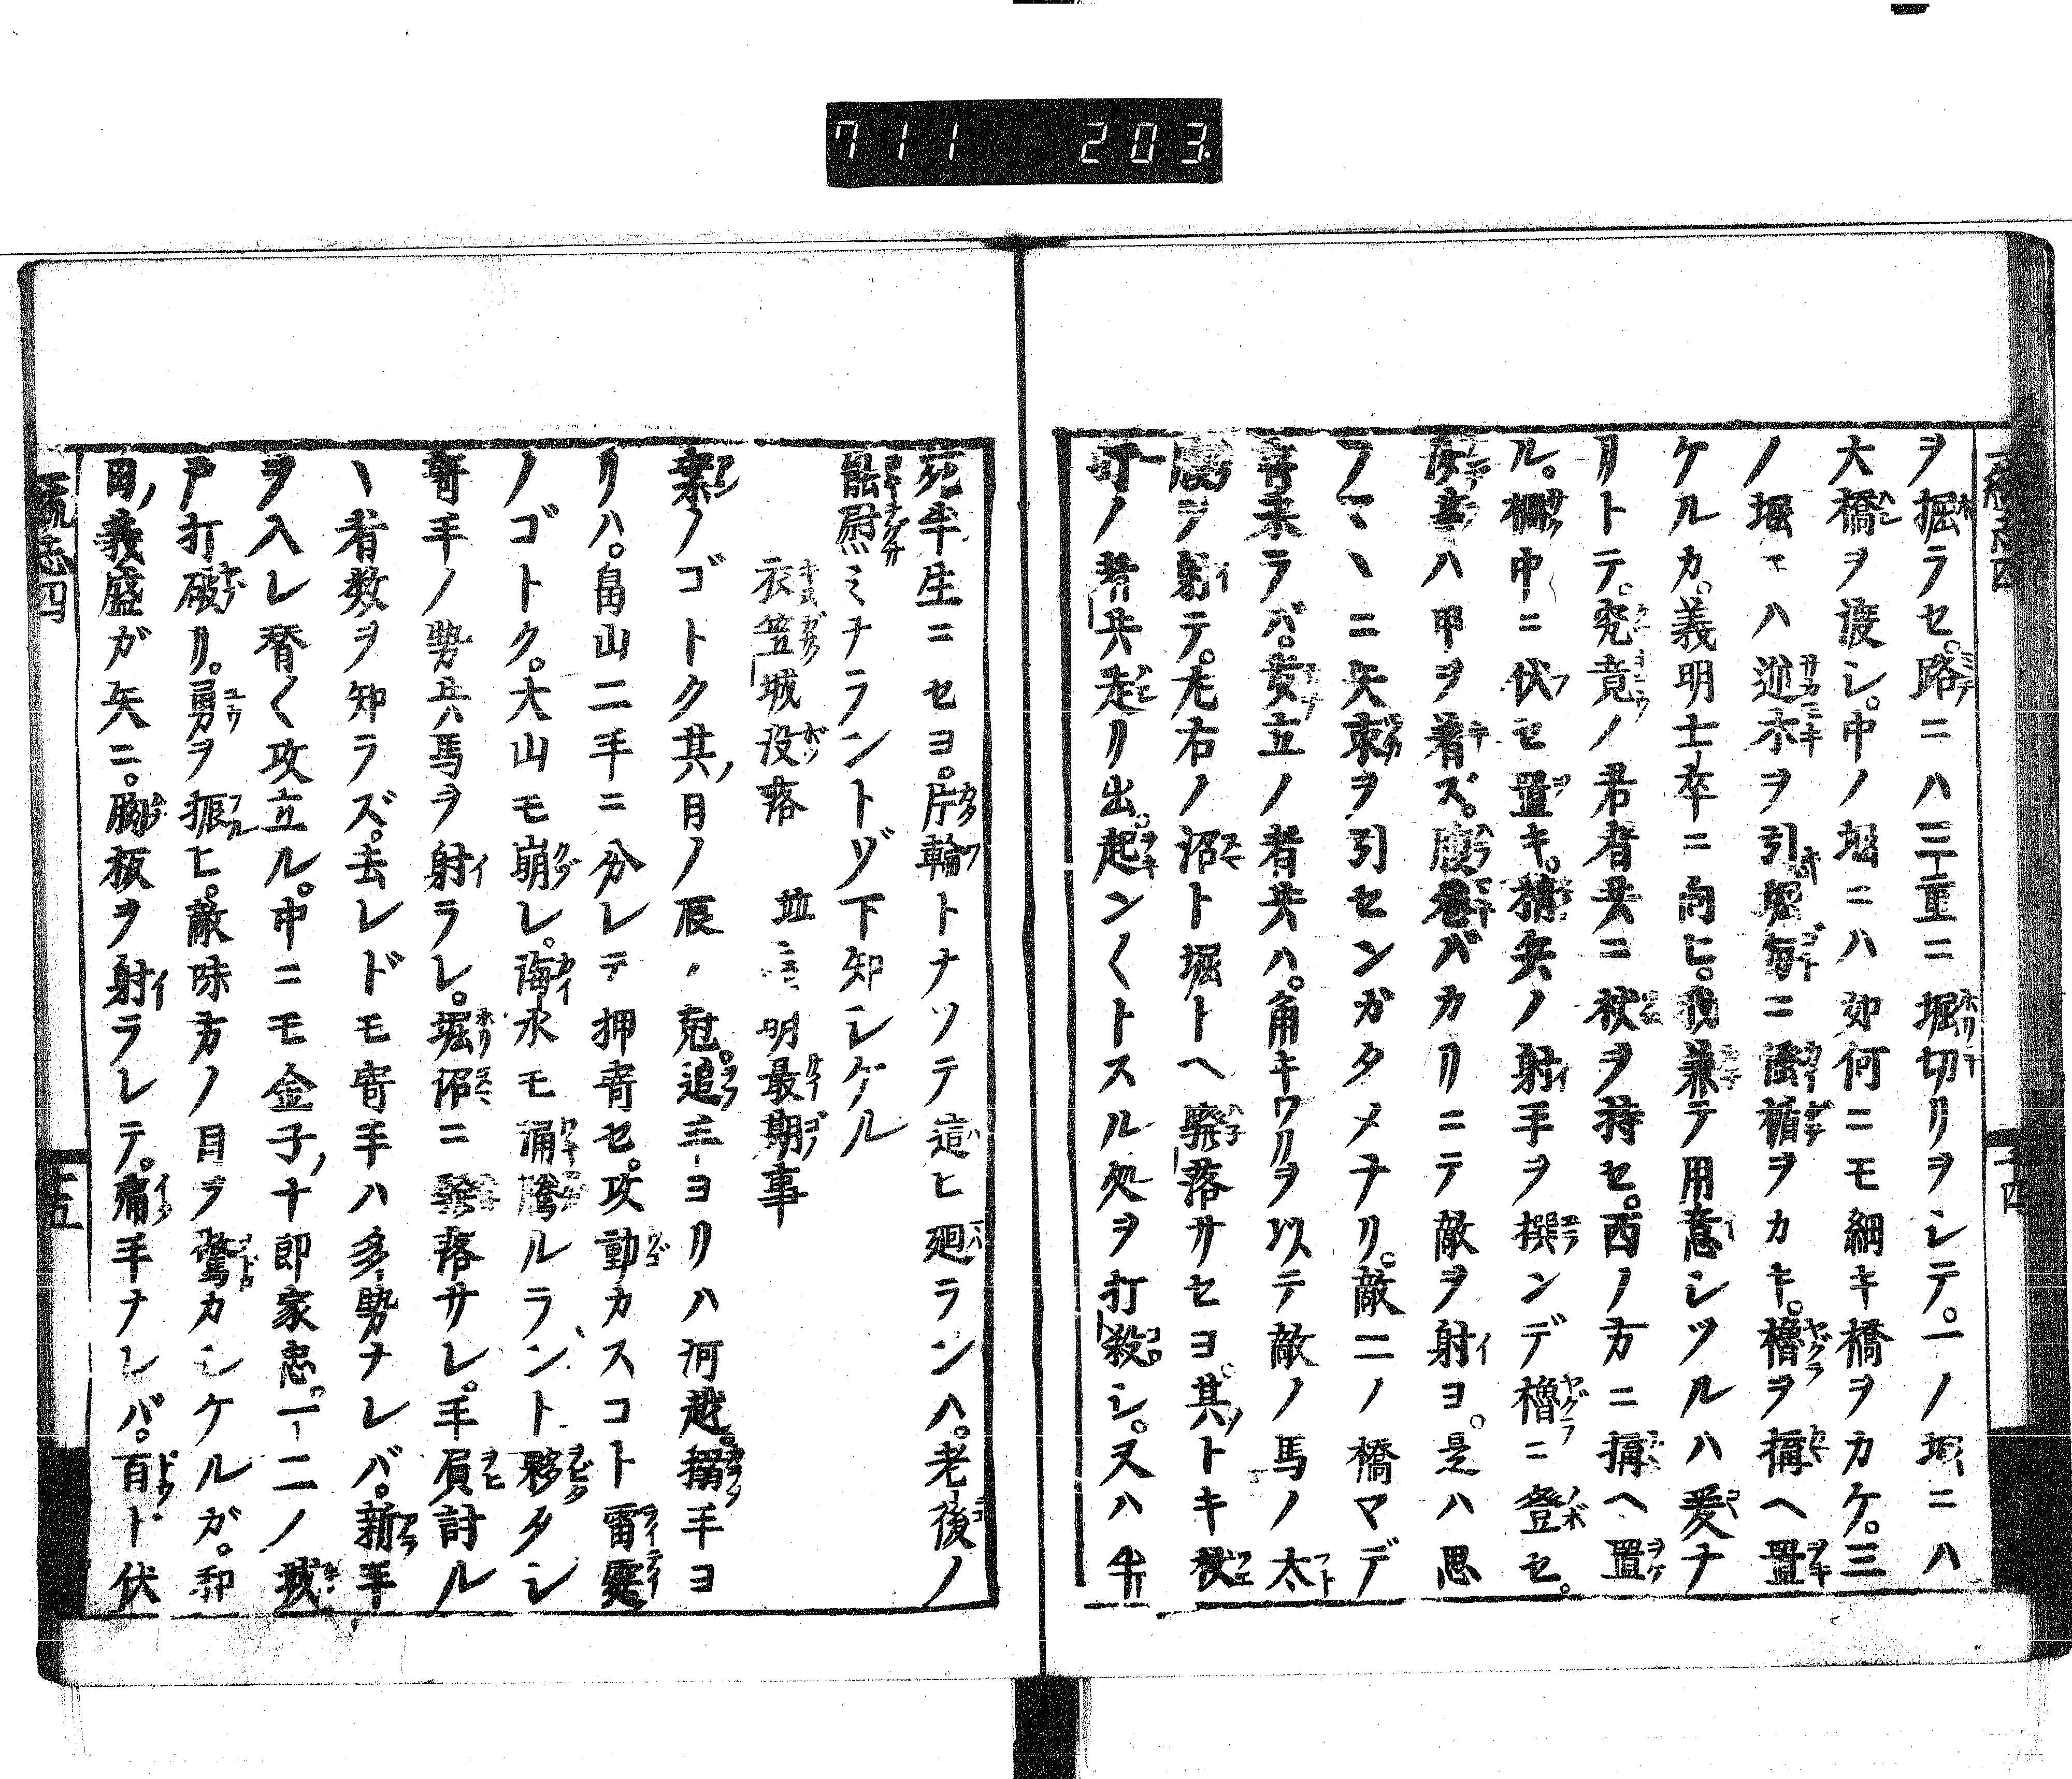 711 203.
ヲ掘ラセ。路ニハ三重ニ堀切リヲシテ。一ノ堀ニハ
大橋ヲ渡シ。中ノ堀ニハ如何ニモ細キ橋ヲカケ。三
ノ堀ニハ逆木ヲ引堀毎ニ掻楯ヲカキ。櫓ヲ構ヘ置
ケルカ。義明士卒ニ向ヒ。我兼テ用意シツルハ爰ナ
リトテ。究竟ノ若者共ニ杖ヲ持セ。西ノ方ニ構ヘ置
ル。柵中ニ伏セ置キ。精兵ノ射手ヲ撰ンデ櫓ニ登セ。
ハ甲ヲ着ズ。腹巻バカリニテ敵ヲ射ヨ。是ハ思
フマヽニ矢束ヲ引センガタメナリ。敵二ノ橋マデ
寄来ラバ。立ノ者共ハ。角キワリヲ以テ敵ノ馬ノ太
腹ヲ射テ。左右ノ沼ト堀トヘ発落サセヨ。其トキ杖
打ノ者共走リ出。起ン〱トスル処ヲ打殺シ。又ハ半
巻四
十四
死半生ニセヨ。片輪トナソテ這ヒ廻ランハ。老後ノ
能慰ミナラントゾ下知シケル
衣笠城没落 並義明最期事
案ノゴトク其月ノ辰ノ尅。追手ヨリハ河越。搦手ヨ
リハ。畠山二手ニ分レテ押寄セ。攻動カスコト雷霆
ノゴトク。大山モ崩レ。海水モ涌騰ルラント夥タシ
寄手ノ勢兵馬ヲ射ラレ。堀沼ニ発落サレ。手屓討ル
ヽ者数ヲ知ラズ。去レドモ寄手ハ多勢ナレバ。新手
ヲ入レ替〱攻立ル。中ニモ金子十郎家忠。一二ノ城
戸打破リ。勇ヲ振ヒ。敵味方ノ目ヲ驚カシケルガ。和
田義盛ガ矢ニ。胸板ヲ射ラレテ。痛手ナレバ。百ト伏
四
十五